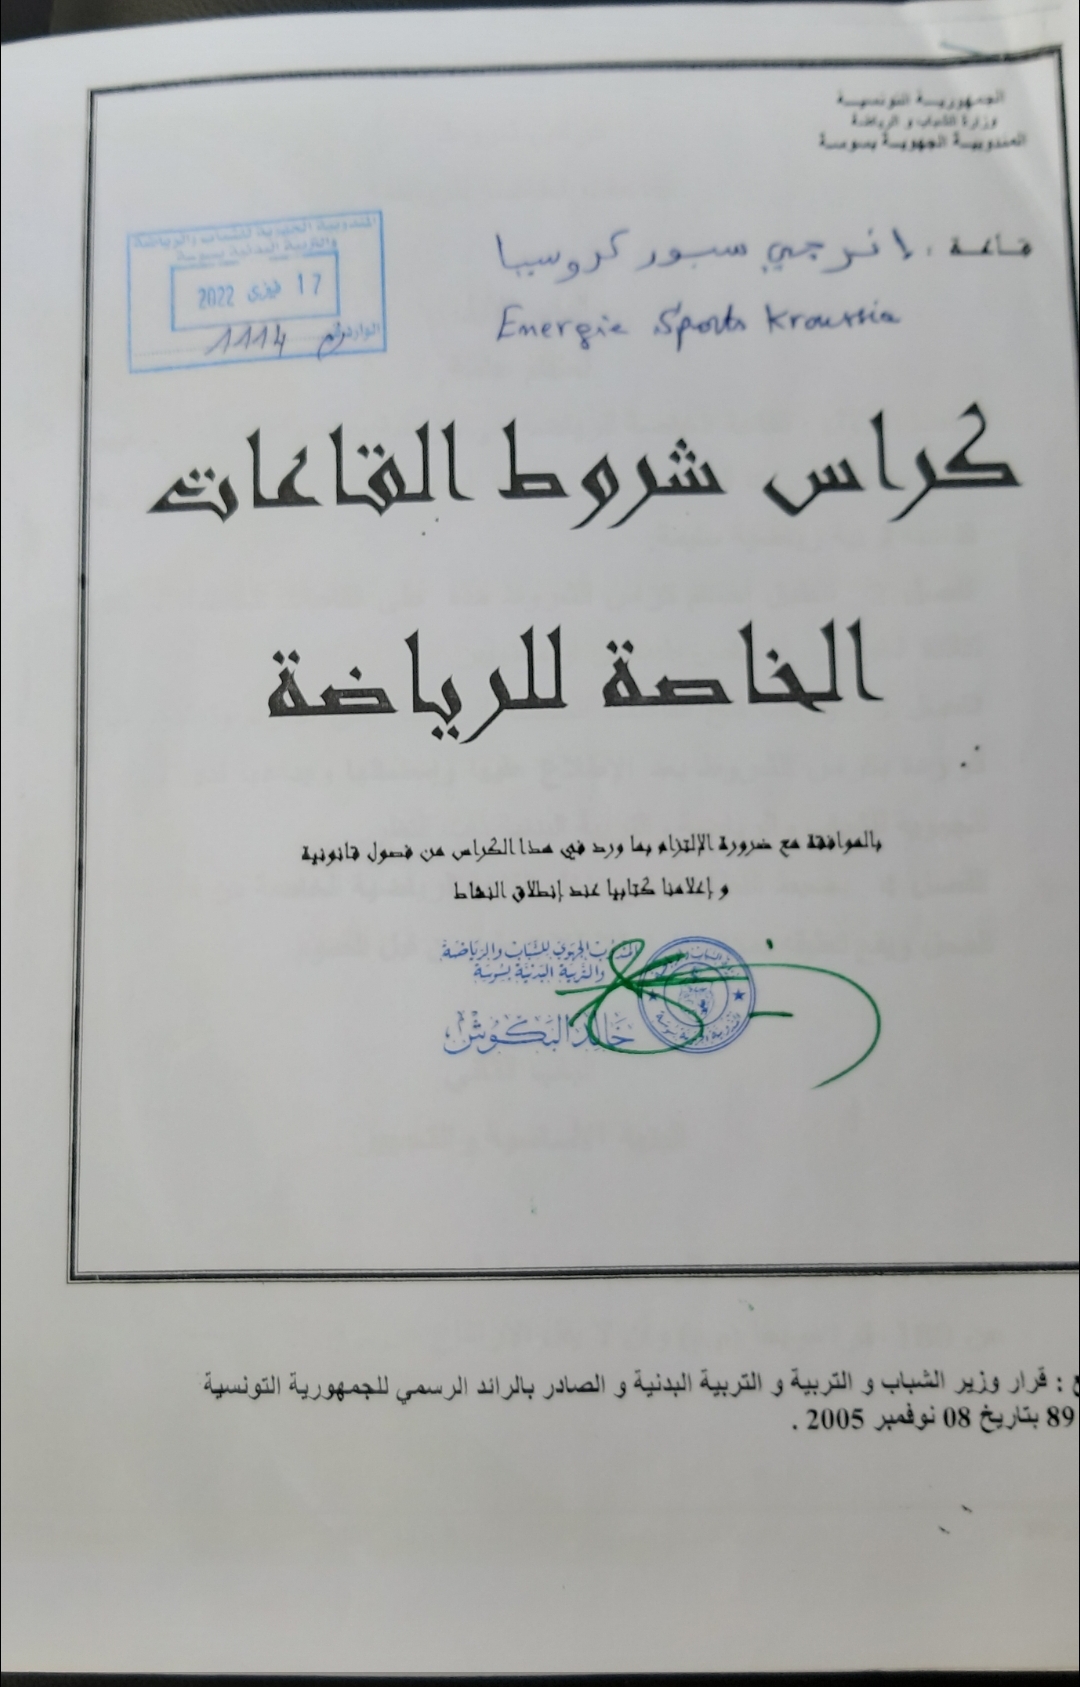 الجمهورية التونسية
وزارة الشباب و الرياضة
المندوبية الجهوية بسوسة
المندوبية الجهوية للشباب والرياضة
والتربية البدنية بسوسة
17 فيفري 2022
الوارد رقم 1114
قاعة : إنرجي سبور كروسيا
Energie Sports Kroussia
كراس شروط القاعات
الخاصة للرياضة
بالموافقة مع ضرورة الإلتزام بما ورد في هذا الكراس من فصول قانونية
و إعلامنا كتابيا عند إنطلاق النشاط
المندوب الجهوي للشباب والرياضة
والتربية البدنية بسوسة
خالد البكوش
ع : قرار وزير الشباب و التربية و التربية البدنية و الصادر بالرائد الرسمي للجمهورية التونسية
89 بتاريخ 08 نوفمبر 2005 .